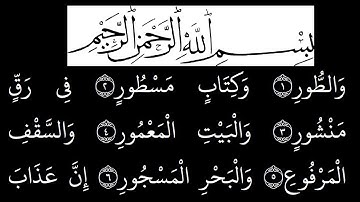 بِسْمِ اللَّهِ الرَّحْمَٰنِ الرَّحِيمِ
وَالطُّورِ ١ وَكِتَابٍ مَسْطُورٍ ٢ فِى رَقٍّ
مَنْشُورٍ ٣ وَالْبَيْتِ الْمَعْمُورِ ٤ وَالسَّقْفِ
الْمَرْفُوعِ ٥ وَالْبَحْرِ الْمَسْجُورِ ٦ إِنَّ عَذَابَ